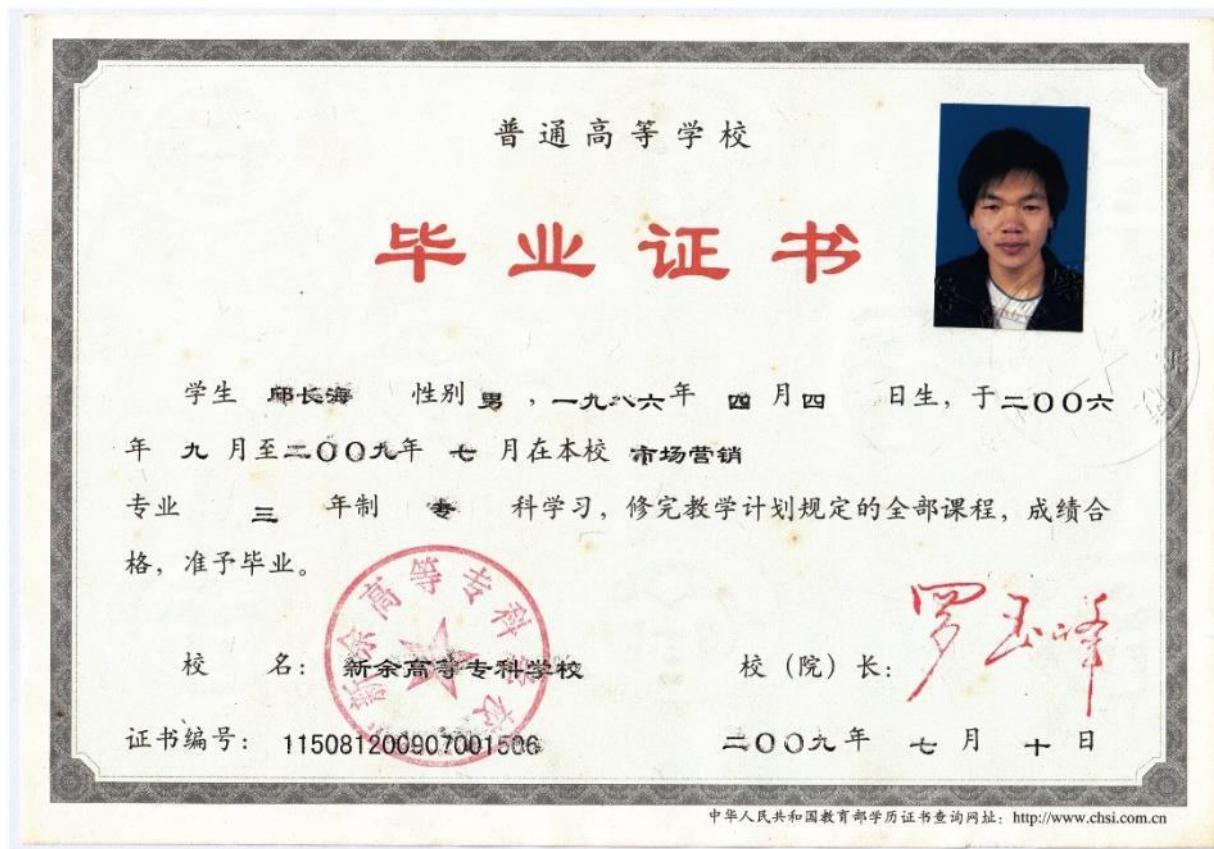 普通高等学校
毕业证书
学生 邱长海 性别 男 ,一九八六年 四 月四 日生,于二〇〇六
年 九 月至二〇〇九年 七 月在本校 市场营销
专业 三 年制 专 科学习,修完教学计划规定的全部课程,成绩合
格,准予毕业。
新余高等专科学校
校 名: 新余高等专科学校 校(院)长: 罗玉峰
证书编号: 115081200907001506 二〇〇九年 七 月 十 日
中华人民共和国教育部学历证书查询网址:http://www.chsi.com.cn